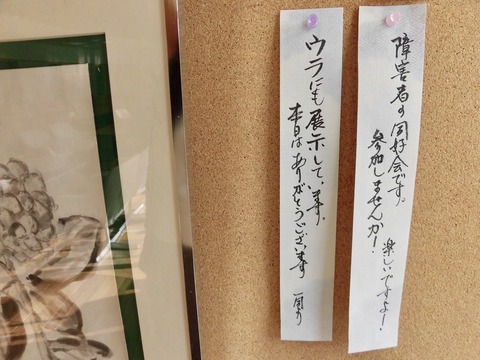 障害者の同好会です。
参加しませんか！
楽しいですよ！
ウラにも展示しています。
本日はありがとうございます
一同より